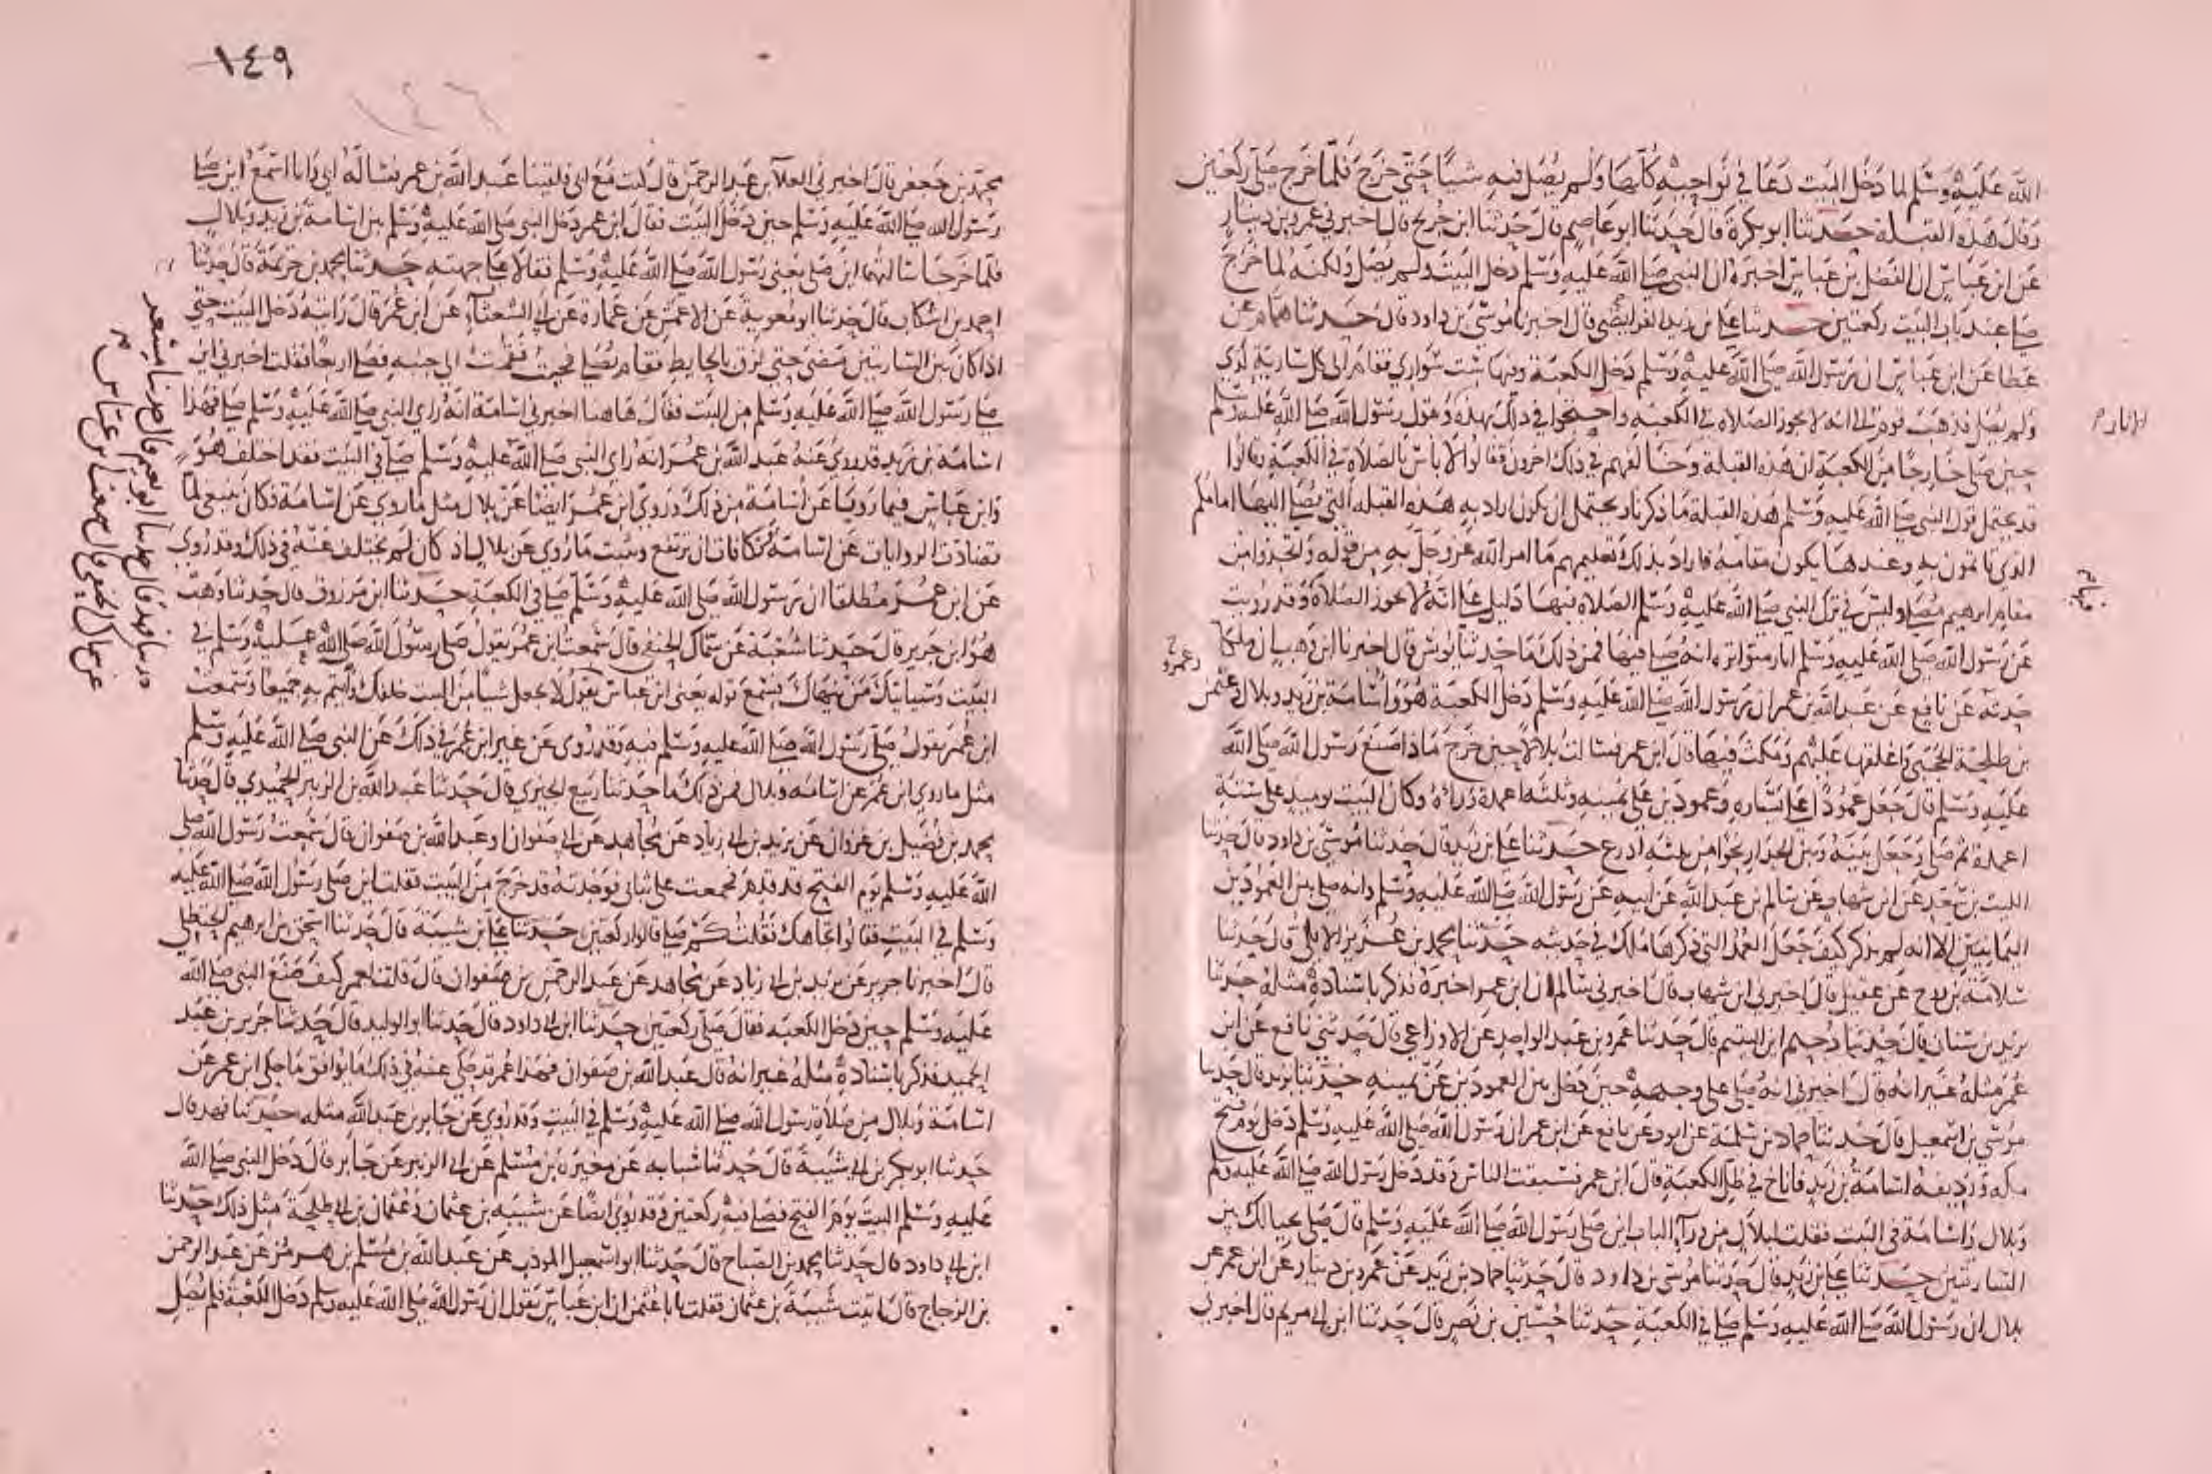 الله عليه وسلم لما دخل البيت دعا في نواحيه كلها ولم يصل فيه شيا حتى خرج فلما خرج صلى ركعتين
وقال هذه القبلة حدثنا ابو بكرة قال حدثنا ابو عاصم قال حدثنا ابن جريج قال اخبرني عمرو بن دينار
عن ابن عباس ان الفضل بن عباس اخبره ان النبي صلى الله عليه وسلم دخل البيت ولم يصل ولكنه لما خرج
صلى عند باب البيت ركعتين حدثنا علي بن زيد الفرايضي قال اخبرنا موسى بن داود قال حدثنا همام عن
عطا عن ابن عباس ان رسول الله صلى الله عليه وسلم دخل الكعبة وفيها ست سواري فقام الى كل سارية
ولم يصل فذهب قوم الى انه لا يجوز الصلاه في الكعبه واحتجوا في ذلك بهذه وبقول رسول الله صلى الله عليه وسلم
حين صلى خارجا من الكعبة ان هذه القبلة وخالفهم في ذلك اخرون فقالوا لا باس بالصلاة في الكعبة وقالوا
قد يحتمل قول النبي صلى الله عليه وسلم هذه القبلة ما ذكرنا ويحتمل ان يكون اراد به هذه القبله التي يصلي اليها امامكم
الذي تاتمون به وعندها يكون مقامه فاراد بذلك تعليمهم ما امر الله عز وجل به من قوله واتخذوا من
مقام ابرهيم مصلى وليس في ترك النبي صلى الله عليه وسلم الصلاة فيها دليل على انه لا يجوز الصلاة وقد رويت
عن رسول الله صلى الله عليه وسلم اثار متواتره انه صلى فيها فمن ذلك ما حدثنا يونس قال اخبرنا ابن وهب ان ملكا
حدثه عن نافع عن عبد الله بن عمر ان رسول الله صلى الله عليه وسلم دخل الكعبة هو واسامة بن زيد وبلال وعثمن
بن طلحة الحجبي واغلقها عليهم ومكث فيها قال ابن عمر فسالت بلالا حين خرج ماذا صنع رسول الله صلى الله
عليه وسلم قال جعل عمودا على يساره وعمودين على يمينه وثلثه اعمدة وراه وكان البيت يوميذ على ستة
اعمدة ثم صلى وجعل بينه وبين الجدار نحوا من ثلثه اذرع حدثنا علي بن زيد قال حدثنا موسى بن داود قال حدثنا
الليث بن سعد عن ابن شهاب عن سالم بن عبد الله عن ابيه عن رسول الله صلى الله عليه وسلم وانه صلى بين العمودين
اليمانيين الا انه لم يذكر كيف جعل العمد التي ذكرها ملك في حديثه حدثنا محمد بن عزيز الايلي قال حدثنا
سلامة بن روح عن عقيل قال اخبرني ابن شهاب قال اخبرني سالم ان ابن عمر اخبره فذكر باسناده مثله حدثنا
يزيد بن سنان قال حدثنا دحيم ابن اليتيم قال حدثنا عمر بن عبد الواحد عن الاوزاعي قال حدثني نافع عن ابن
عمر مثله غير انه قال اخبرني انه صلى على وجهه حين دخل بين العمودين عن يمينه حدثنا يزيد قال حدثنا
موسى بن اسمعيل قال حدثنا حماد بن سلمة عن ايوب عن نافع عن ابن عمر ان رسول الله صلى الله عليه وسلم دخل يوم فتح
مكه ورديفه اسامة بن زيد فاناخ في ظل الكعبة قال ابن عمر فسبقت الناس وقد دخل رسول الله صلى الله عليه وسلم
وبلال واسامة في البيت فقلت لبلال من وراء الباب اين صلى رسول الله صلى الله عليه وسلم قال صلى بحيالك بين
الساريتين حدثنا علي بن زيد قال حدثنا موسى بن داود قال حدثنا حماد بن زيد عن عمرو بن دينار عن ابن عمر عن
بلال ان رسول الله صلى الله عليه وسلم صلى في الكعبة حدثنا حسين بن نصر قال حدثنا ابن ابي مريم قال اخبرني
١٤٩
١٤٦
محمد بن جعفر قال اخبرني العلا بن عبد الرحمن قال كنت مع ابي فلقينا عبد الله بن عمر فساله ابي وانا اسمع اين صلى
رسول الله صلى الله عليه وسلم حين دخل البيت فقال ابن عمر دخل النبي صلى الله عليه وسلم بين اسامة بن زيد وبلال
فلما خرجا سالتهما اين صلى يعني رسول الله صلى الله عليه وسلم فقالا على جهته حدثنا محمد بن خزيمة قال حدثنا
احمد بن اشكاب قال حدثنا ابو معوية عن الاعمش عن عمارة عن ابي الشعثاء عن ابن عمر قال رايته دخل البيت حتى
اذا كان بين الساريتين مضى حتى لزق بالحايط فقام يصلي فجيت فقمت الى جنبه فصلى اربعا فقلت اخبرني اين
صلى رسول الله صلى الله عليه وسلم من البيت فقال هاهنا اخبرني اسامة انه راي النبي صلى الله عليه وسلم صلى فهذا
اسامة بن زيد قد روي عنه عبد الله بن عمر انه راي النبي صلى الله عليه وسلم صلى في البيت فقد اختلف هو
وابن عباس فيما رويا عن اسامة من ذلك وروى ابن عمر ايضا عن بلال مثل ما روي عن اسامة فكان ينبغي لما
تضادت الروايات عن اسامة وتكافات ان ترتفع وتثبت ما روي عن بلال اذ كان لم يختلف عنه في ذلك وقد روي
عن ابن عمر مطلقا ان رسول الله صلى الله عليه وسلم صلى في الكعبة حدثنا ابن مرزوق قال حدثنا وهب
هو ابن جرير قال حدثنا شعبة عن سماك الحنفي قال سمعت ابن عمر يقول صلى رسول الله صلى الله عليه وسلم في
البيت وسياتيك من ينهاك فتسمع قوله يعني ابن عباس يقول لا تجعل شيا من البيت خلفك واتم به جميعا وسمعت
ابن عمر يقول صلى رسول الله صلى الله عليه وسلم فيه وقد روى عن غير ابن عمر في ذلك عن النبي صلى الله عليه وسلم
مثل ما روى ابن عمر عن اسامه وبلال فمن ذلك ما حدثنا ربيع الجيزي قال حدثنا عبد الله بن الزبير الحميدي قال حدثنا
محمد بن فضيل بن غزوان عن يزيد بن ابي زياد عن مجاهد عن ابي صفوان او عبد الله بن صفوان قال سمعت رسول الله صلى
الله عليه وسلم يوم الفتح قد قدم فجمعت علي ثيابي فوجدته قد خرج من البيت فقلت اين صلى رسول الله صلى الله عليه
وسلم في البيت فقالوا تجاهك فقلت كم صلى قالوا ركعتين حدثنا علي بن شيبة قال حدثنا اسحق بن ابرهيم الحنظلي
قال اخبرنا جرير عن يزيد بن ابي زياد عن مجاهد عن عبد الرحمن بن صفوان قال قلت لعمر كيف صنع النبي صلى الله
عليه وسلم حين دخل الكعبه فقال صلى ركعتين حدثنا ابن ابي داود قال حدثنا ابو الوليد قال حدثنا جرير بن عبد
الحميد فذكر باسناده مثله غير انه قال عبد الله بن صفوان فهذا عمر قد حكي عنه في ذلك ما يوافق ما حكى ابن عمر عن
اسامة وبلال من صلاة رسول الله صلى الله عليه وسلم في البيت وقد روي عن جابر بن عبد الله مثله حدثنا فهد قال
حدثنا ابو بكر بن ابي شيبة قال حدثنا شبابه عن مغيرة بن مسلم عن ابي الزبير عن جابر قال دخل النبي صلى الله
عليه وسلم البيت يوم الفتح فصلى فيه ركعتين وقد روي ايضا عن شيبه بن عثمان وعثمان بن طلحة مثل ذلك حدثنا
ابن ابي داود قال حدثنا محمد بن الصباح قال حدثنا ابو اسمعيل المودب عن عبد الله بن مسلم بن هرمز عن عبد الرحمن
بن الزجاج قال اتيت شيبة بن عثمان فقلت يا با عثمن ان ابن عباس يقول ان رسول الله صلى الله عليه وسلم دخل الكعبة فلم يصل
حدثنا فهد قال حدثنا ابو نعيم قال حدثنا مسعر
عن سماك الحنفي قال سمعت ابن عباس